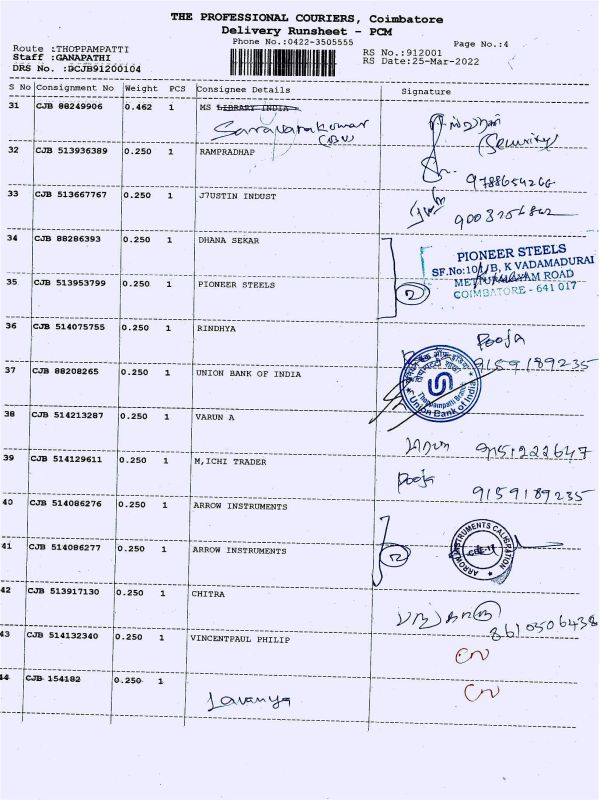 THE PROFESSIONAL COURIERS, Coimbatore
Delivery Runsheet - PCM
Phone No.:0422-3505555
Page No.:4
Route :THOPPAMPATTI
RS No.:912001
Staff :GANAPATHI
RS Date:25-Mar-2022
DRS No. :DCJB91200104
S No Consignment No Weight PCS Consignee Details Signature
31 CJB 88249906 0.462 1 MS LIBRARY INDIA
Saravanakumar
(Security)
32 CJB 513936389 0.250 1 RAMPRADHAP
9788654266
33 CJB 513667767 0.250 1 J7USTIN INDUST
34 CJB 88286393 0.250 1 DHANA SEKAR
PIONEER STEELS
SF.No:101/B, K VADAMADURAI
METTUPALAYAM ROAD
COIMBATORE - 641 017
35 CJB 513953799 0.250 1 PIONEER STEELS
2
36 CJB 514075755 0.250 1 RINDHYA
Pooja
9159189235
37 CJB 88208265 0.250 1 UNION BANK OF INDIA
Thoppampatti Branch
Union Bank of India
38 CJB 514213287 0.250 1 VARUN A
39 CJB 514129611 0.250 1 M,ICHI TRADER
Pooja
9159189235
40 CJB 514086276 0.250 1 ARROW INSTRUMENTS
ARROW INSTRUMENTS CALIBRATION
41 CJB 514086277 0.250 1 ARROW INSTRUMENTS
2
42 CJB 513917130 0.250 1 CHITRA
8610506438
43 CJB 514132340 0.250 1 VINCENTPAUL PHILIP
44 CJB 154182 0.250 1
Lavanya